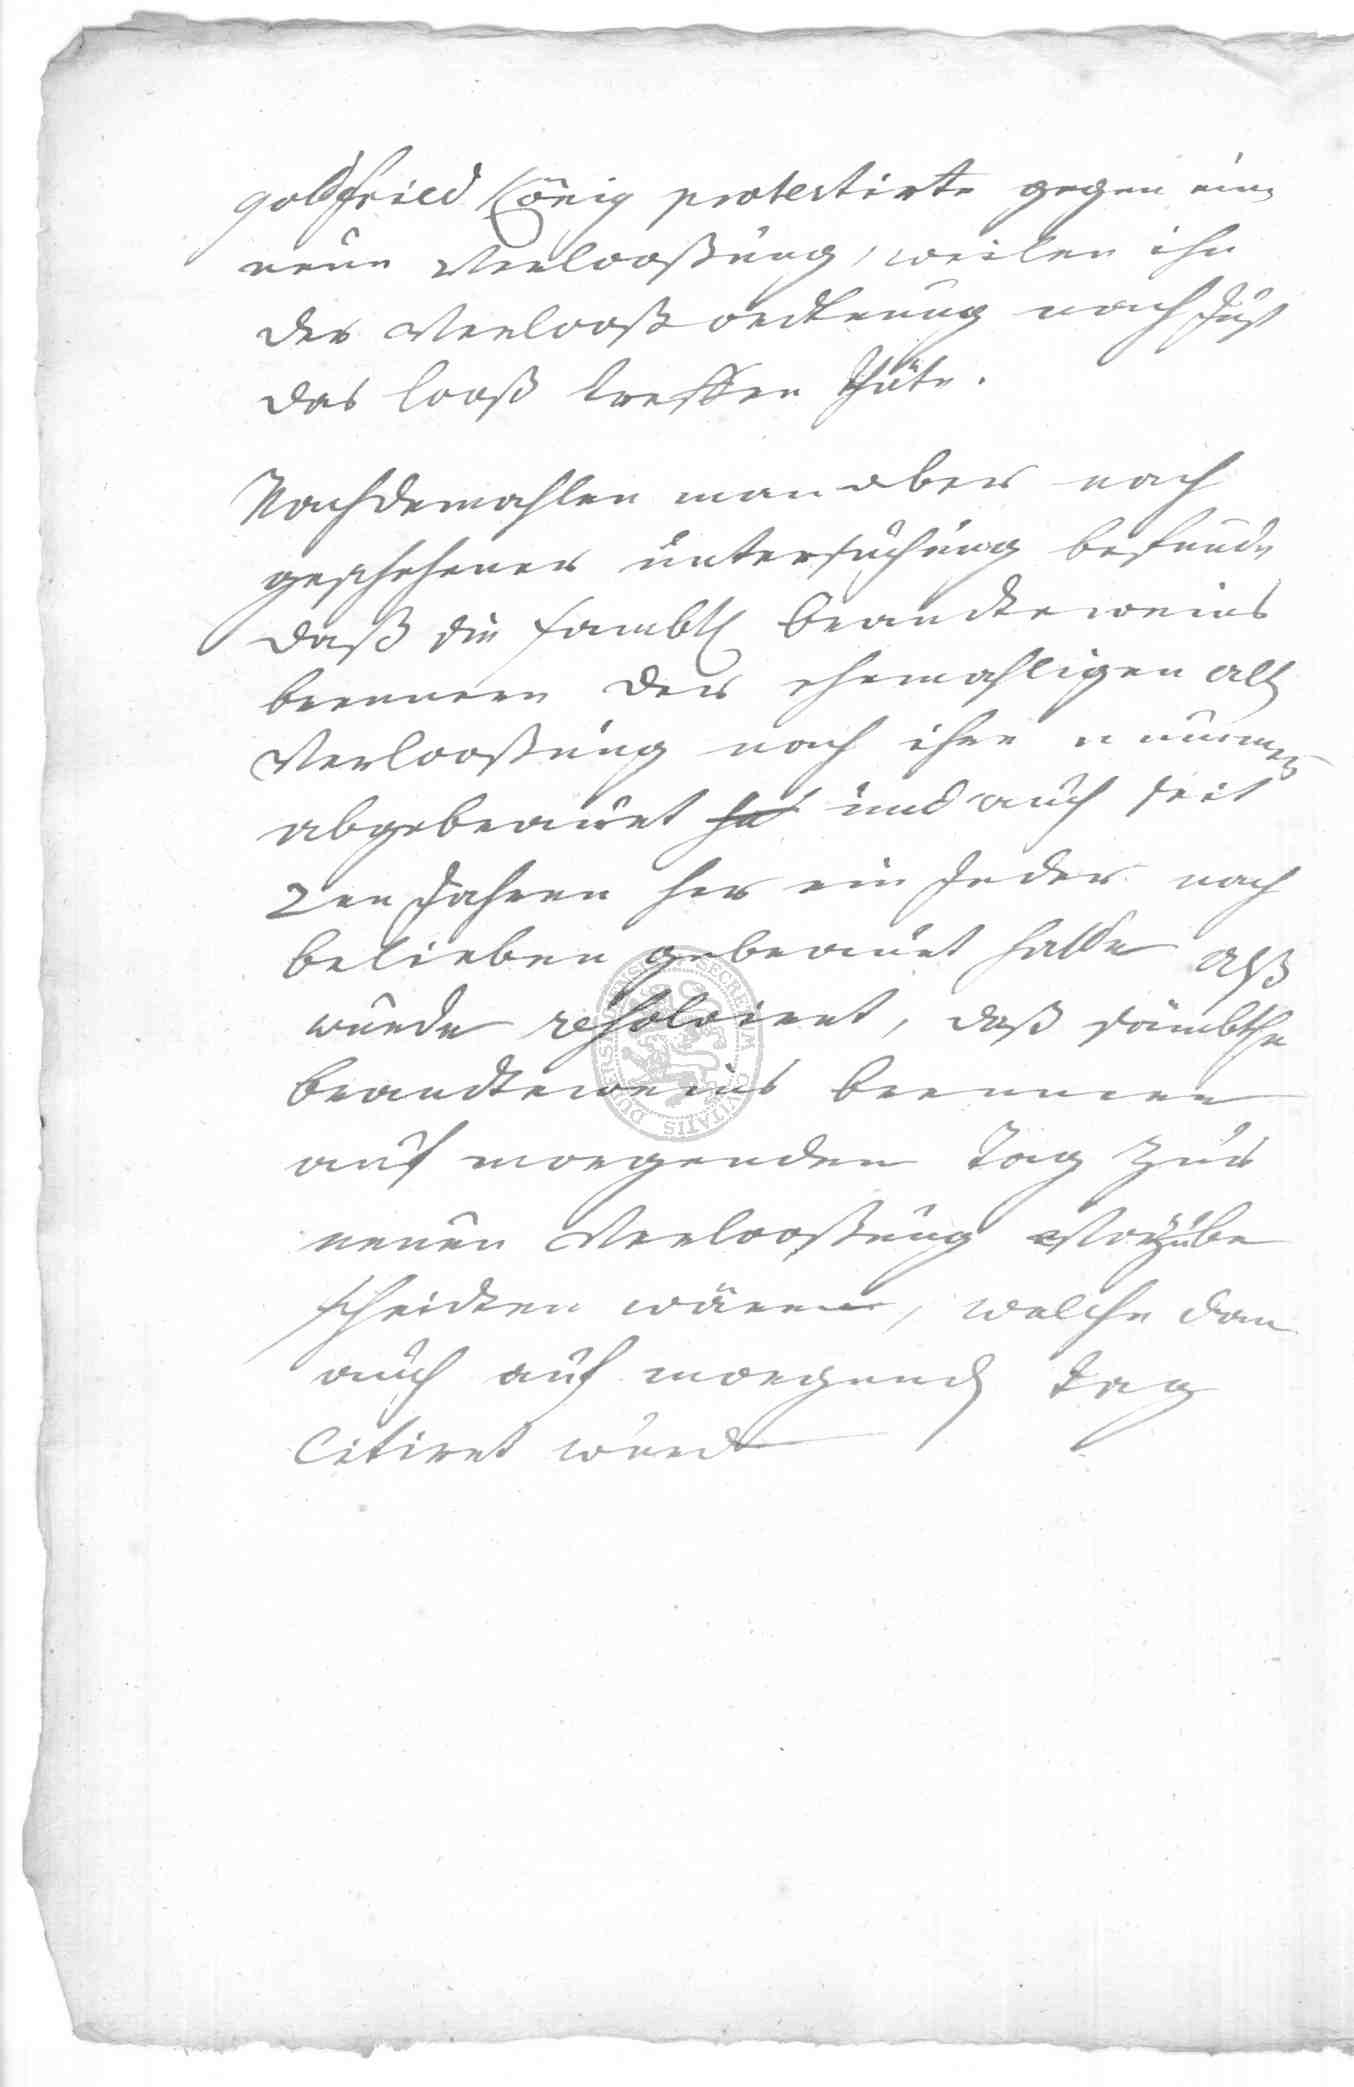 gottfried König protestirte gegen eine
neue Verlooßung, weilen ihn
der Verlooß ordtnung nach just
das looß treffen thäte.
Nachdemahlen man aber nach
geschehener untersuchung befunden
daß die sambtl brandteweins
brennern der ehemahligen alten
Verlooßung nach ihre nummer
abgebrauet und auch seit
2en Jahren her ein Jeder nach
belieben gebrauet hatte alß
wurde resolviret, daß sämbtliche
brandteweins brennere
auf morgenden tag zur
neuen Verlooßung Vorzube
scheidten wären, welche dan
auch auf morgend tag
Citiret wurdt
SECRETUM CIVITATIS DUDERSTADENSIS